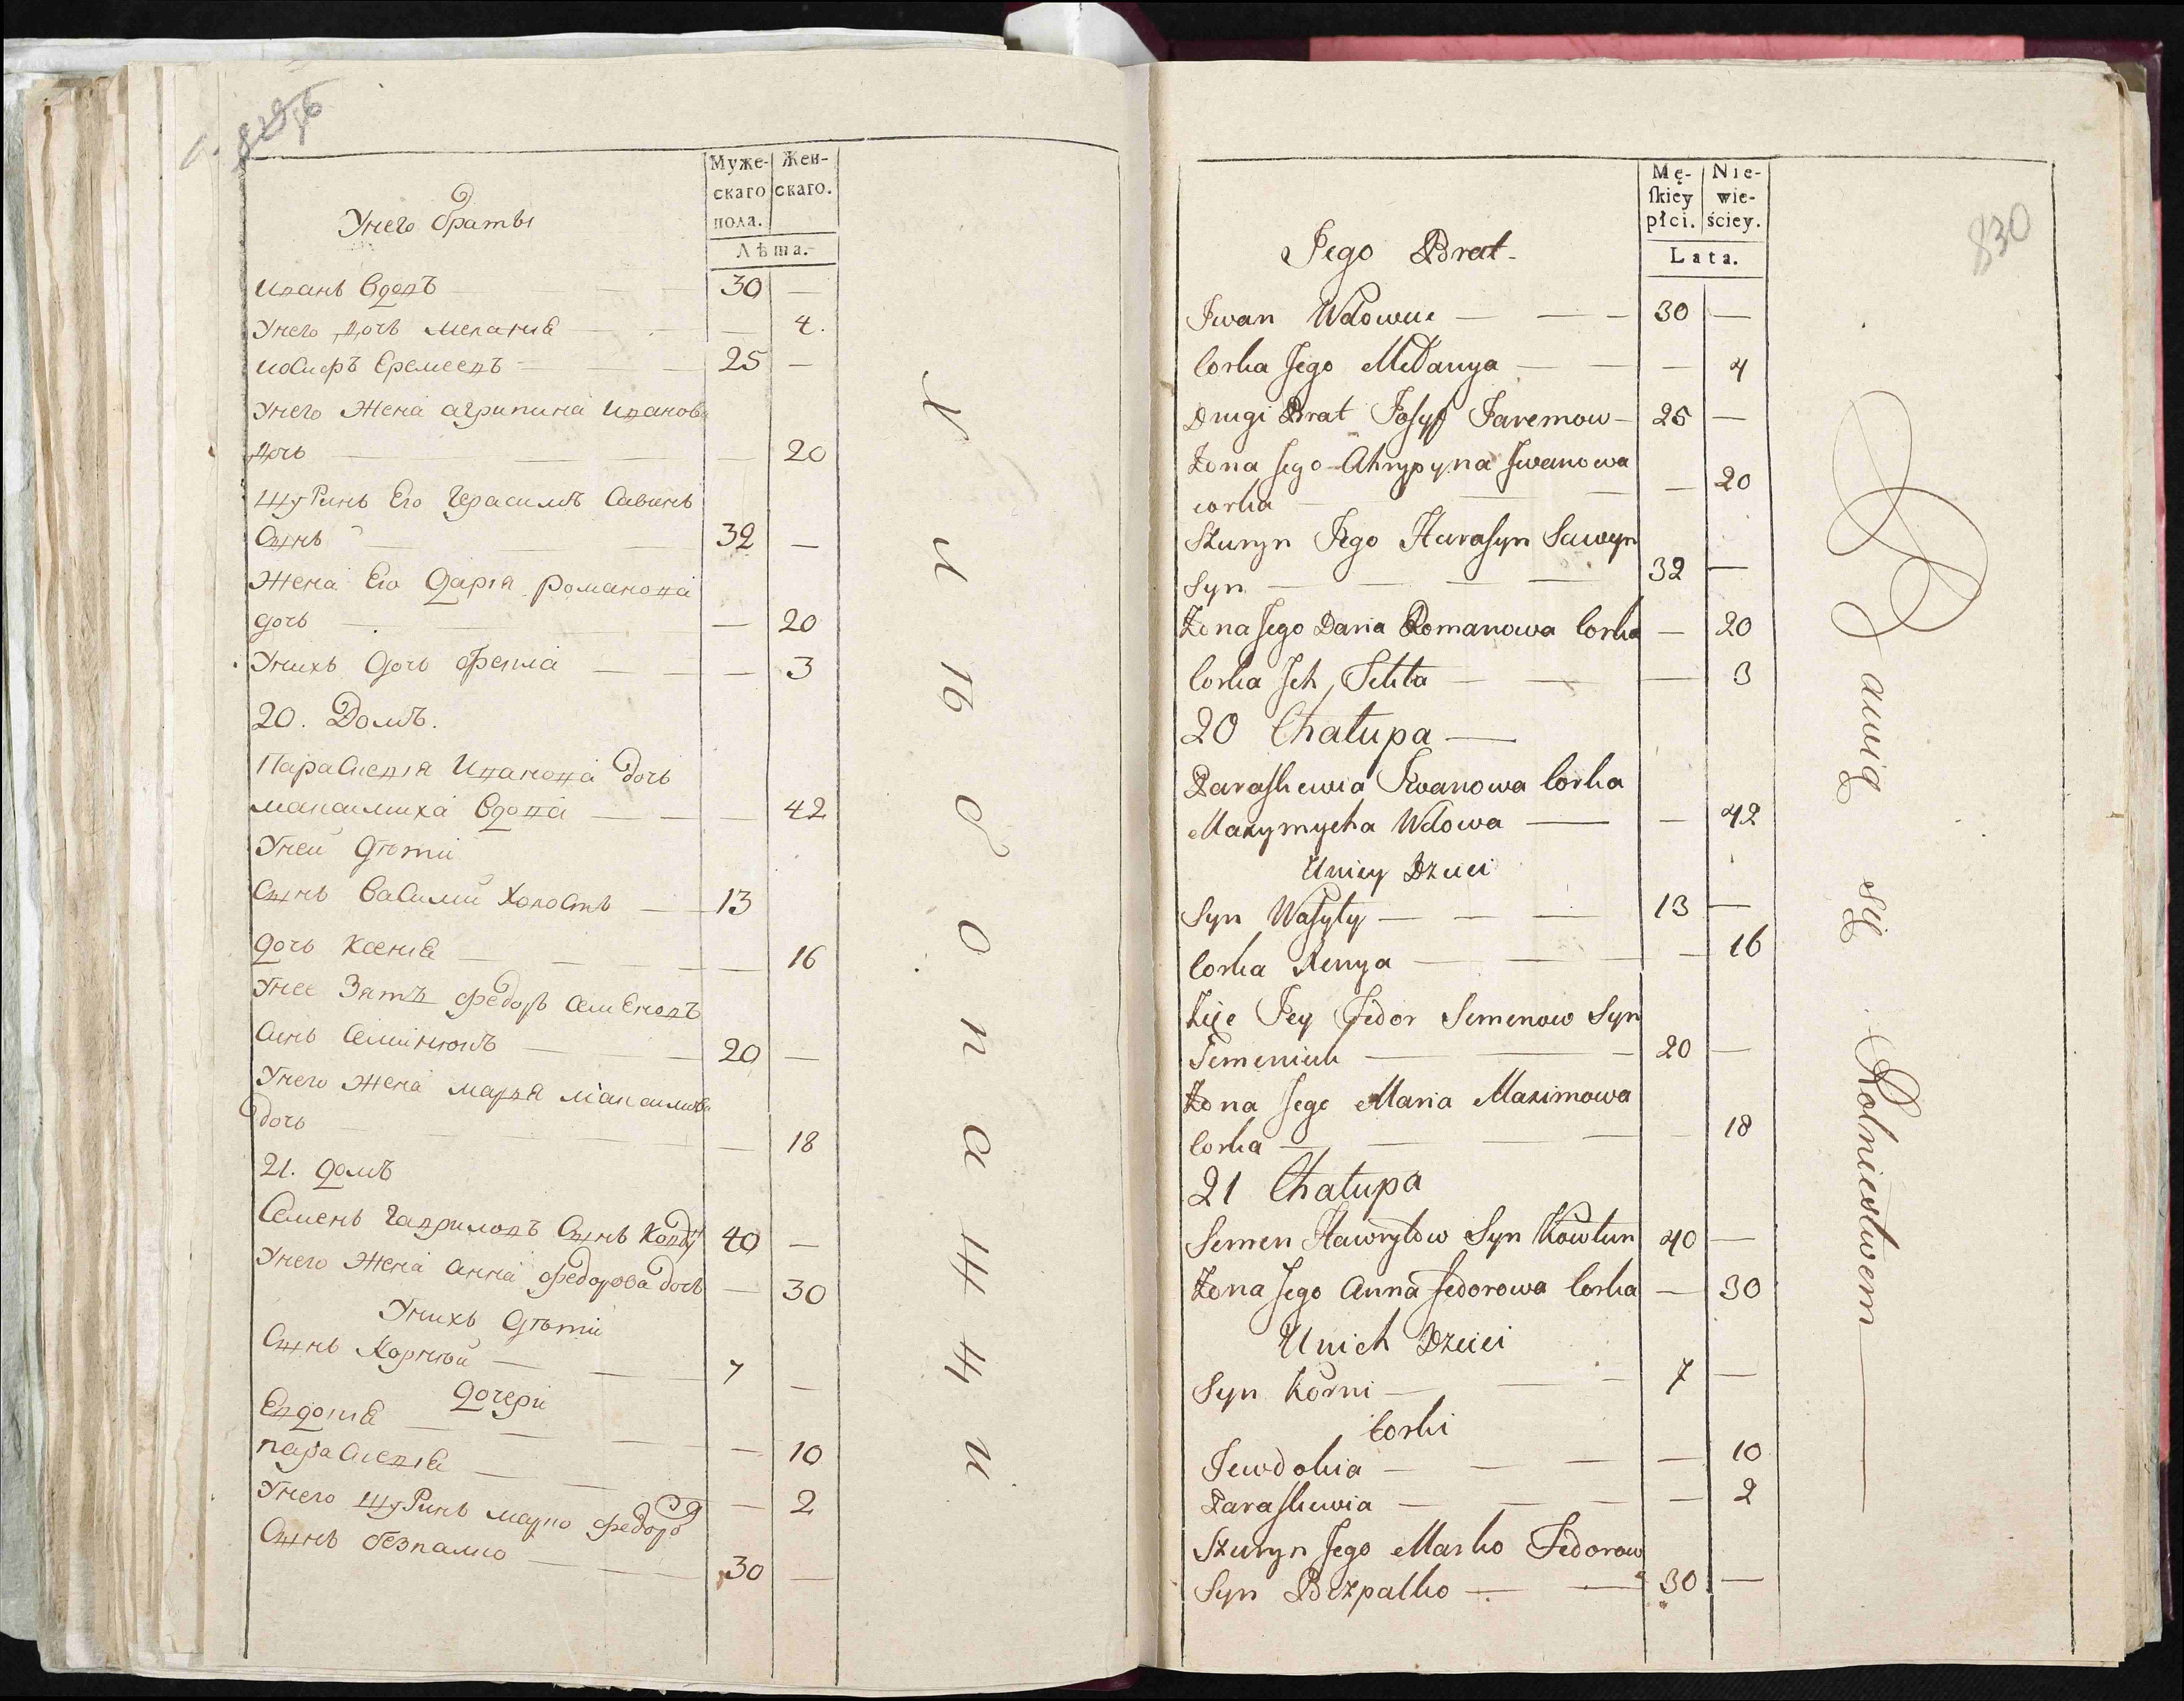 Муже- Жен-
скаго скаго.
пола.
Лѣта.
Унего браты
иванъ вдовъ — 30 —
Унего дочь меланиѣ — — 4.
иосифъ Еремеевъ — 25 —
Унего Жена агрипина иванова
дочь — — 20
Шуринъ Его Герасимъ Савинъ
Сынъ — 32 —
Жена Его Дария романова
дочь — — 20
Унихъ дочь — — 3
20. Домъ.
Параскевия Иванова дочь
максимиха вдова — — 42
Уней дѣти
Сынъ василий холостъ — 13
дочь ксениѣ — — 16
Унее Зять федоръ семеновъ
Синъ семинюкъ — 20 —
Унего Жена марья максимова
дочь — — 18
21. домъ
Семенъ гавриловъ Сынъ 40 —
Унего Жена анна федорова дочь — 30
Унихъ дѣти
Сынъ Корний — 7 —
дочери
Евдокиѣ — — 10
параскевиѣ — — 2
Унего шуринъ марко федоро
Сынъ безпалко — 30 —
830
Mę- Nie-
ſkiey wie-
płci. ściey.
Lata.
Jego Brat
Jwan Wdowiec — 30 —
Corka Jego Mełanya — — 4
Drugi Brat Josyf Jaremow — 25 —
Żona Jego Ahrypyna Jwanowa
corka — — 20
Szuryn Jego Harasyn Sawyn
Syn — 32 —
Żona Jego Daria Romanowa Corka — 20
Corka Jch — — 3
20 Chałupa —
Paraskewia Jwanowa Corka
Maxymycha Wdowa — — 42
Uniey Dzieci
Syn Wasyly — 13 —
Corka Xenya — — 16
Jey Fedor Semenow Syn
Semeniuk — 20 —
Żona Jego Maria Maximowa
Corka — — 18
21 Chałupa
Semen Hawryłow Syn Kowtun 40 —
Żona Jego Anna Fedorowa Corka — 30
Unich Dzieci
Syn Korni — 7 —
Corki
Jewdokia — — 10
Paraskewia — — 2
Szuryn Jego Marko Fedorow
Syn Bezpalko — 30 —
Bawią się Rolnictwem —